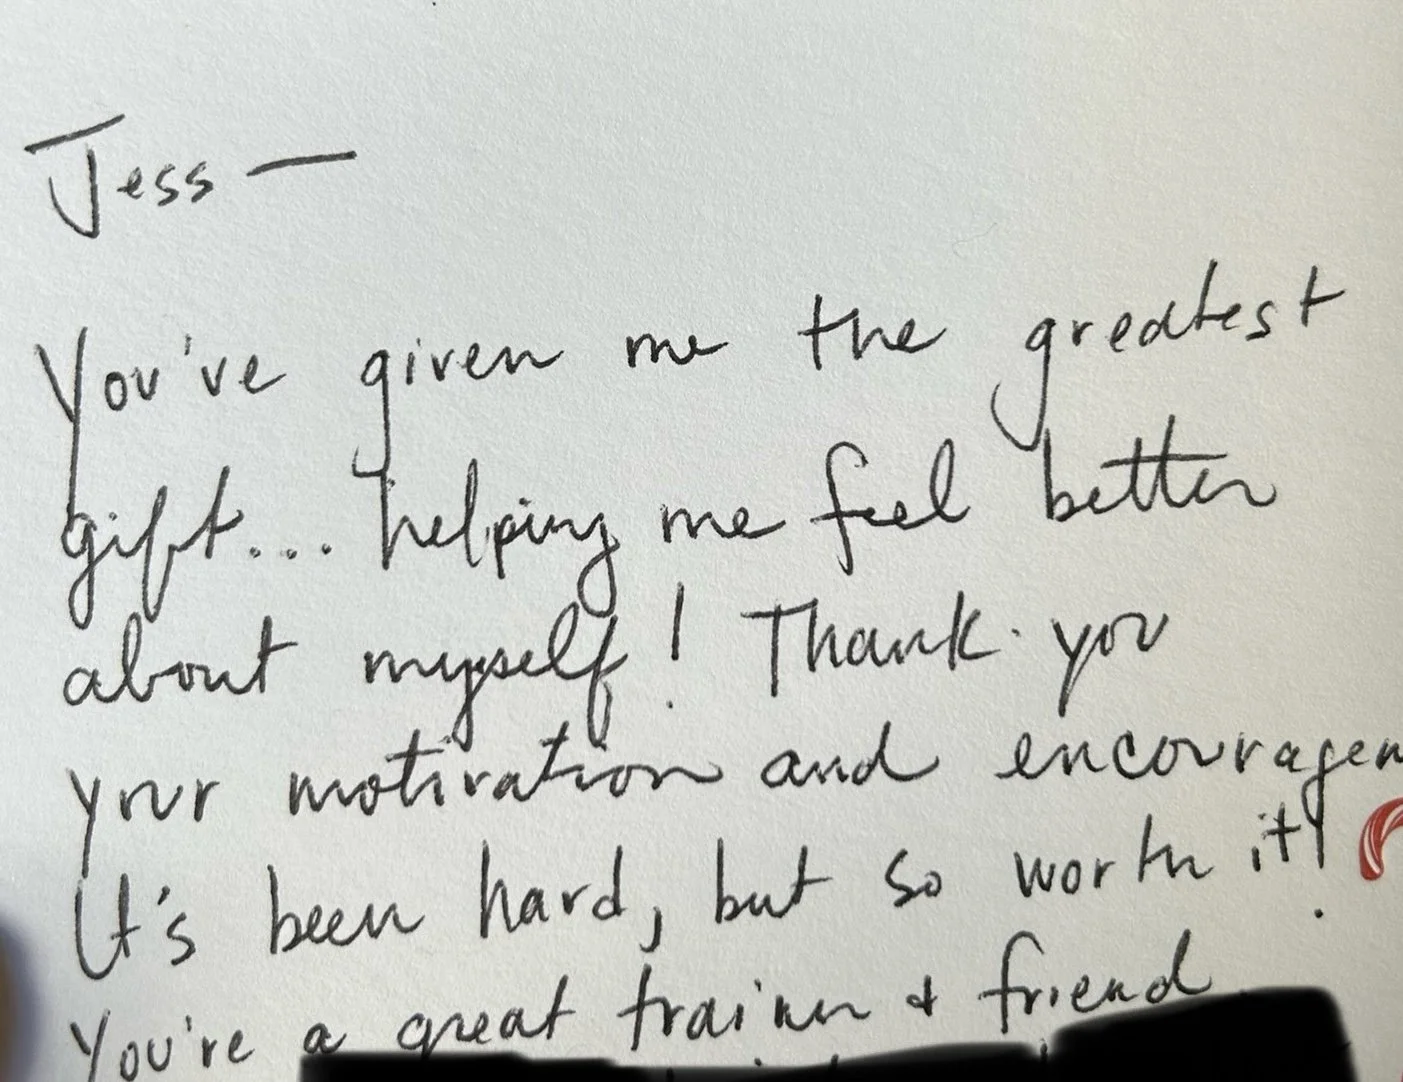 Jess —
You've given me the greatest
gift... helping me feel better
about myself! Thank you
your motivation and encouragem
It's been hard, but so worth it!
You're a great trainer & friend